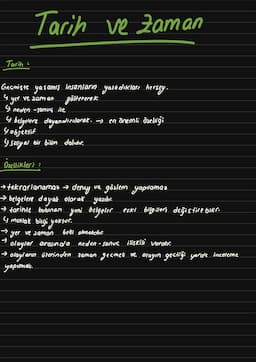 Tarih ve Zaman
Tarih :
Geçmişte yaşamış insanların yaşadıkları herşey.
↳ yer ve zaman göstererek
↳ neden-sonuç ile
↳ belgelere dayandırılarak. → en önemli özelliği
↳ objektif
↳ sosyal bir bilim dalıdır.
Özellikleri :
→ tekrarlanamaz → deney ve gözlem yapılamaz
→ belgelere dayalı olarak yazılır.
→ tarihte bulunan yeni belgeler eski bilgileri değiştirebilir.
↳ mutlak bilgi yoktur.
→ yer ve zaman belli olmalıdır
→ olaylar arasında neden-sonuç ilişkisi vardır.
→ olayların üzerinden zaman geçmeli ve olayın geçtiği yerde inceleme
yapılmalı.